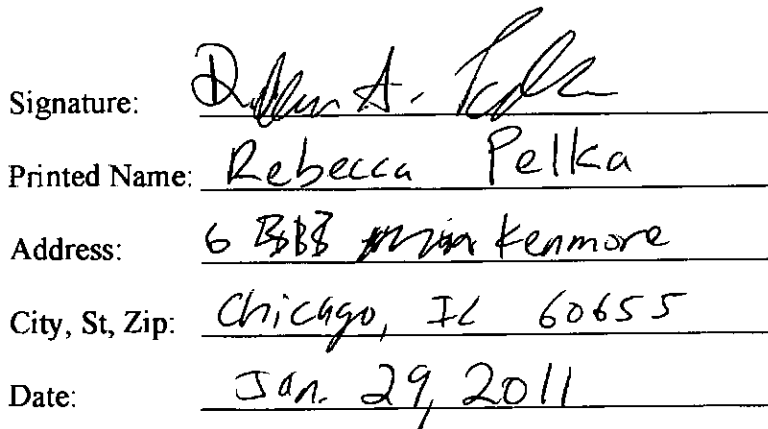 Signature:
Printed Name: Rebecca Pelka
Address: Kenmore
City, St, Zip: Chicago, IL 60655
Date: Jan. 29, 2011